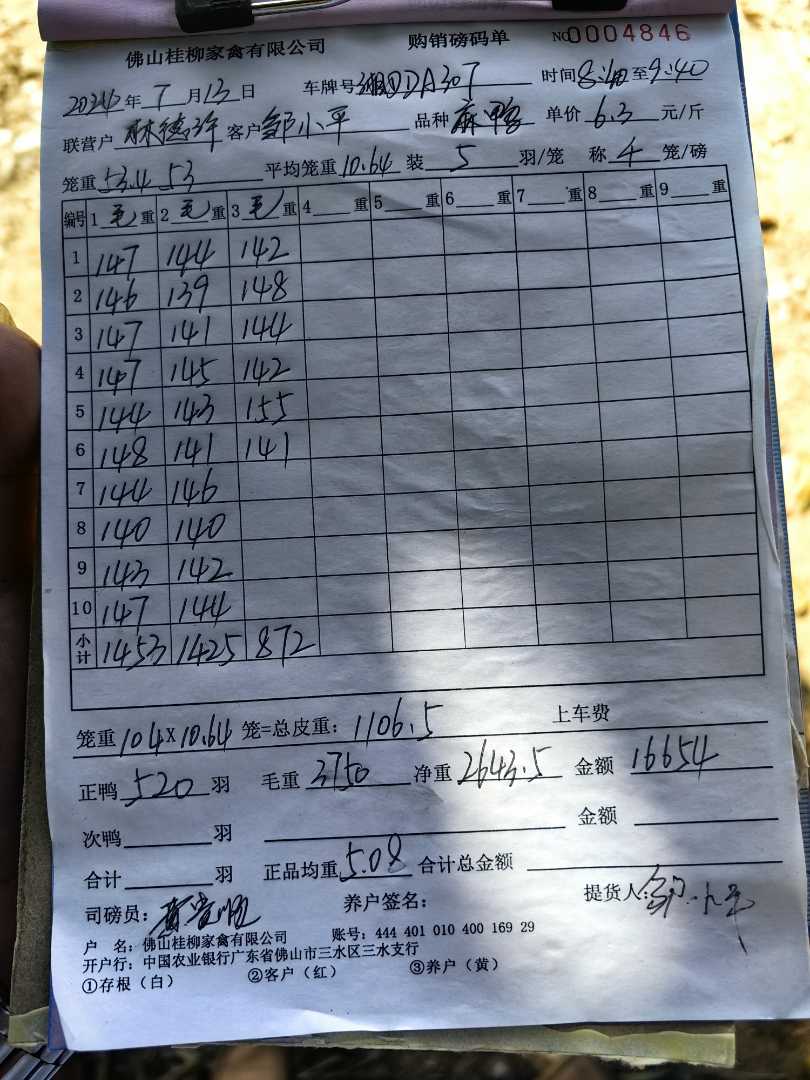 佛山桂柳家禽有限公司 购销磅码单 NO0004846
年7月13日 车牌号 DDA307 时间8:40至9:40
联营户 林德 客户邹小平 品种麻鸭 单价6.3元/斤
笼重53.4 53 平均笼重10.64 装5羽/笼 称4笼/磅
编号 1毛重 2毛重 3毛重 4重 5重 6重 7重 8重 9重
1 147 144 142
2 146 139 148
3 147 141 144
4 147 145 142
5 144 143 155
6 148 141 141
7 144 146
8 140 140
9 143 142
10 147 144
小计 1453 1425 872
笼重104×10.64笼=总皮重:1106.5 上车费
正鸭520羽 毛重3750 净重2643.5 金额16654
次鸭羽 金额
合计羽 正品均重5.08 合计总金额
司磅员: 养户签名: 提货人:邹小平
户 名:佛山桂柳家禽有限公司 账号:444 401 010 400 169 29
开户行:中国农业银行广东省佛山市三水区三水支行
①存根(白) ②客户(红) ③养户(黄)